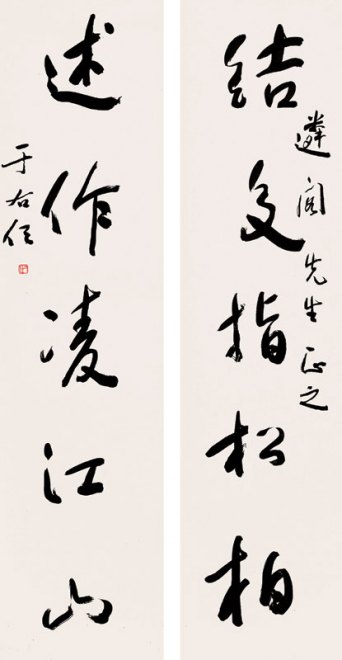 遴閣先生正之
結交指松柏
述作凌江山
于右任